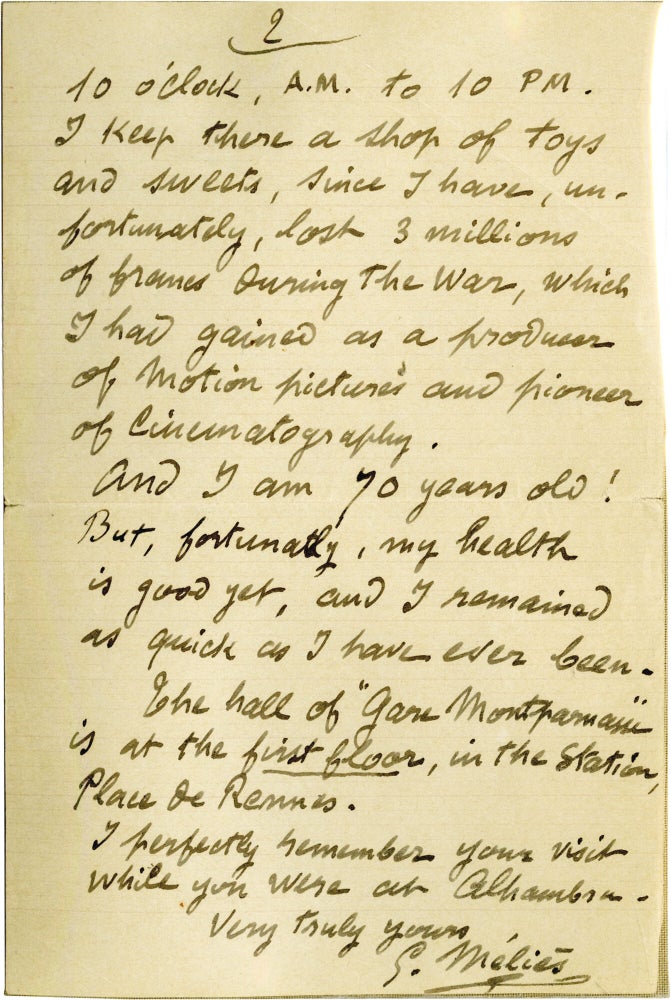 2
10 o'clock, A.M. to 10 PM.
I keep there a shop of toys
and sweets, since I have, un-
fortunately, lost 3 millions
of francs during the War, which
I had gained as a producer
of Motion pictures and pioneer
of Cinematography.
And I am 70 years old!
But, fortunatly, my health
is good yet, and I remained
as quick as I have ever been-
The hall of "Gare Montparnasse"
is at the first floor, in the Station,
Place de Rennes.
I perfectly remember your visit
while you were at Alhambra-
Very truly yours,
G. Méliès